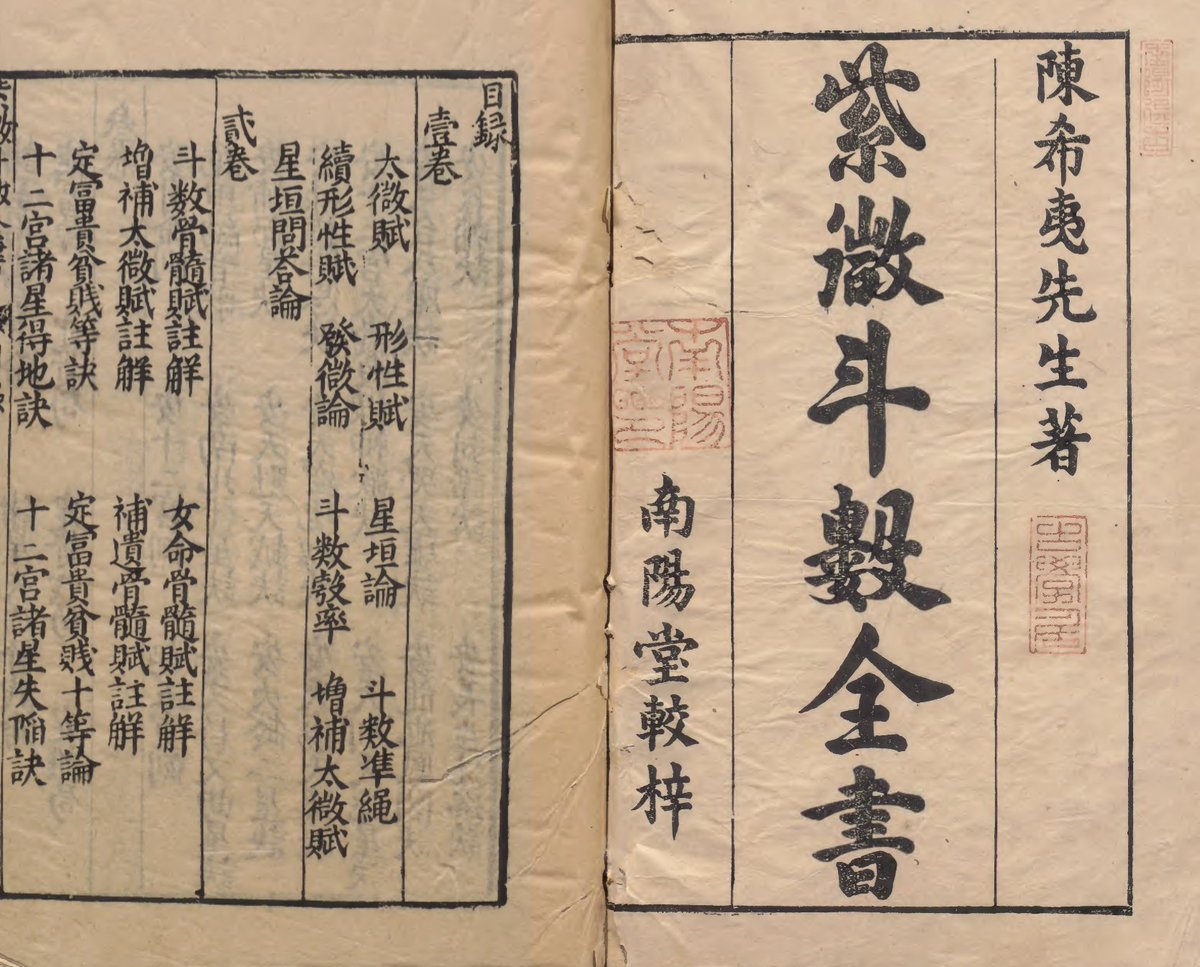 陳希夷先生著
紫微斗數全書
南陽堂較梓
南陽
目録
壹卷
太微賦 形性賦 星垣論 斗数準繩
續形性賦 發微論 斗数彀率 增補太微賦
星垣問答論
貳卷
斗数骨髓賦註解 女命骨髓賦註解
增補太微賦註解 補遺骨髓賦註解
定富貴貧賤等訣 定富貴貧贱十等論
十二宫諸星得地訣 十二宫諸星失陷訣